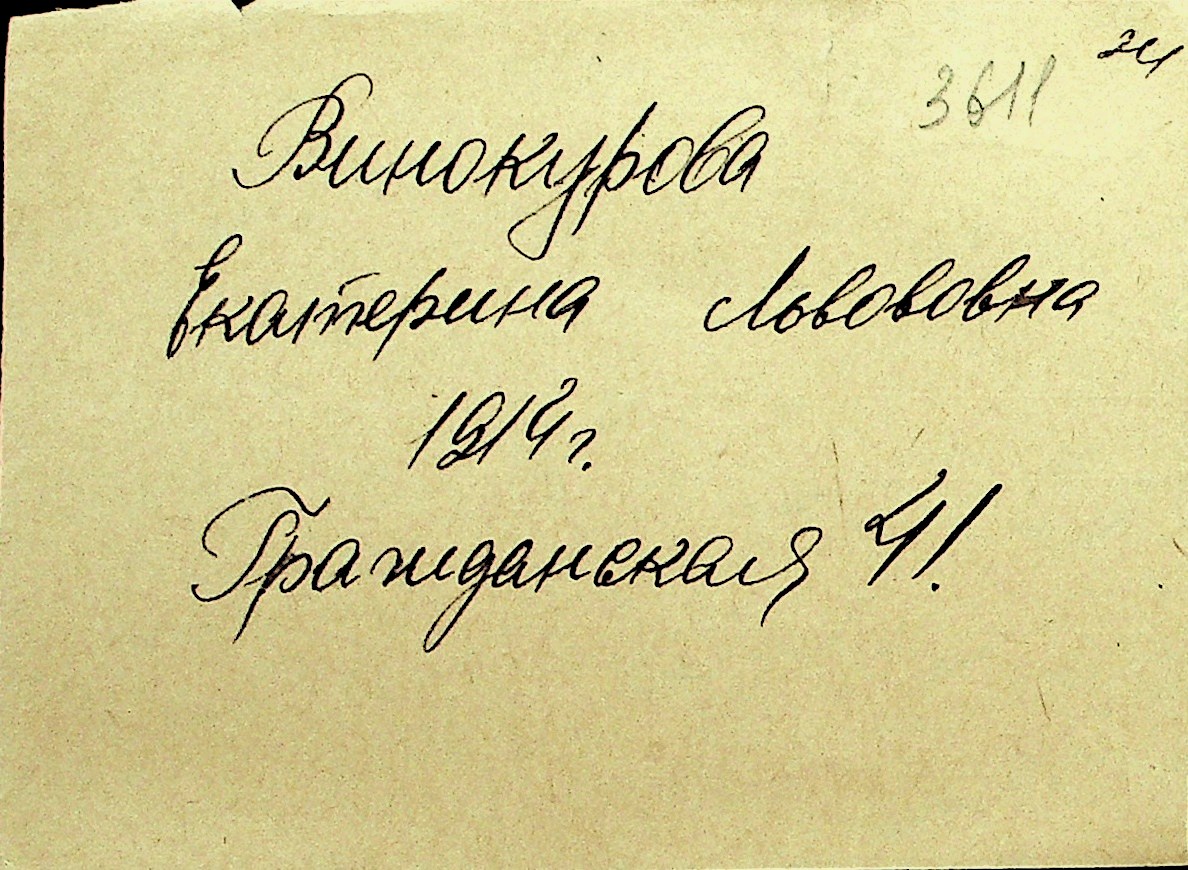 3611
Винокурова
Екатерина Львововна
1914г.
Гражданская 41.